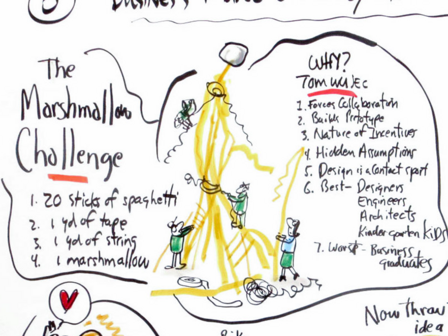 The
Marshmallow
Challenge
1. 20 sticks of spaghetti
2. 1 yd of tape
3. 1 yd of string
4. 1 marshmallow
WHY?
TOM WUJEC
1. Forces Collaboration
2. Builds Prototype
3. Nature of Incentives
4 Hidden Assumptions
5 Design is a Contact sport
6. Best - Designers
Engineers
Architects
Kindergarten KIDS
7. Worst - Business
graduates
Now
idea